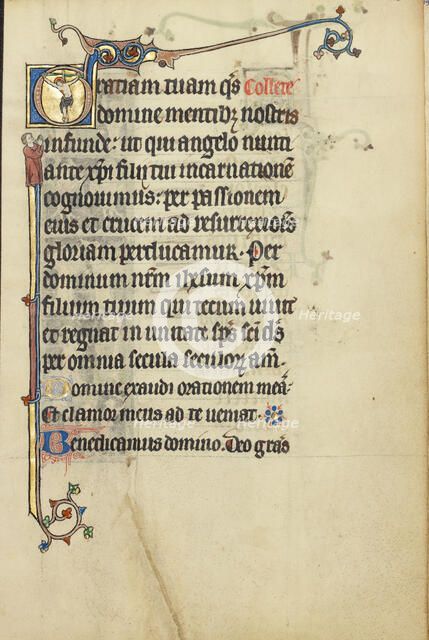 Gratiam tuam qs̄ Collecte
domine mentibȝ nostris
infunde: ut qui angelo nunti
ante xp̄i filij tui incarnationē
cognouimus: per passionem
eius et crucem ad resurrexiōis
gloriam perducamur. Per
dominum nr̄m ihesum xp̄m
filium tuum qui tecum uiuit
et regnat in unitate sp̄s sc̄i ds̄
per omnia secula seculoꝝ am̄.
Domine exaudi orationem meā.
Et clamor meus ad te ueniat.
Benedicamus domino. Deo grās
Heritage Heritage
Heritage Heritage
Heritage Heritage